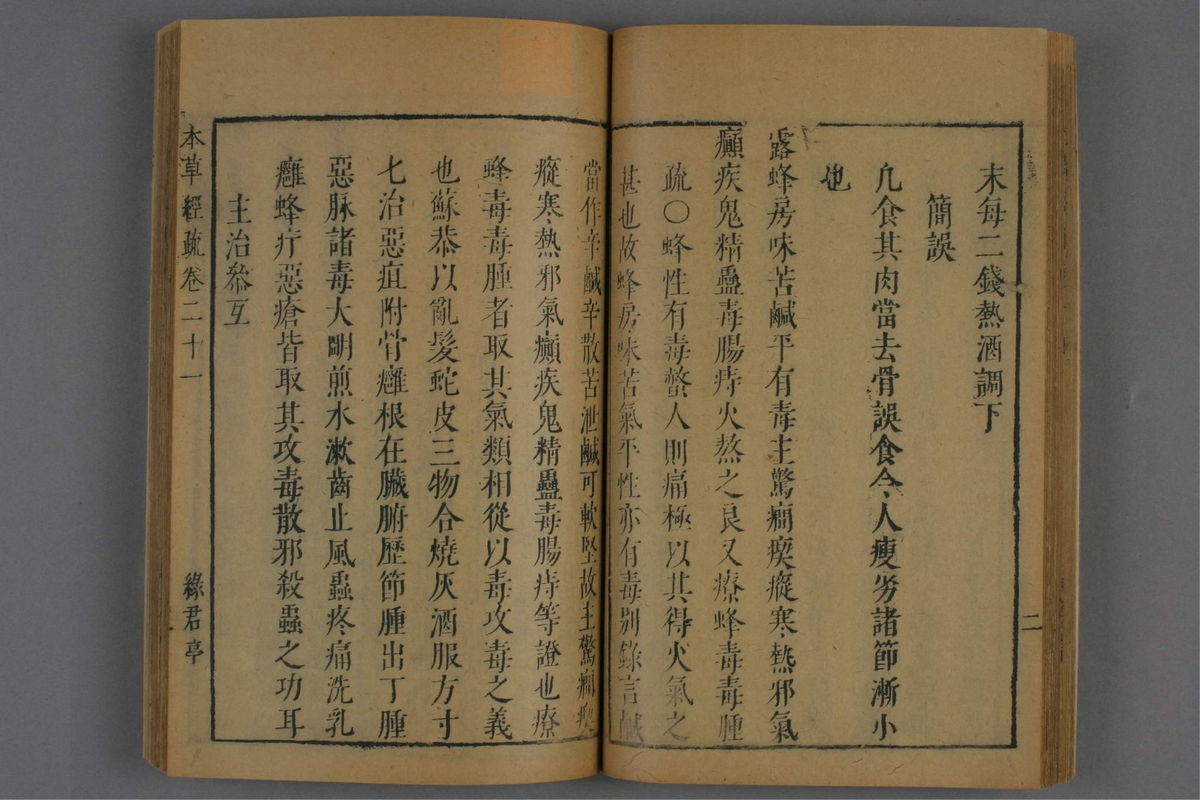 末每二錢熱酒調下
簡誤
凡食其肉當去骨誤食令人瘦劣諸節漸小
也
露蜂房味苦鹹平有毒主驚癇瘈瘲寒熱邪氣
癲疾鬼精蠱毒腸痔火熬之良又療蜂毒毒腫
疏○蜂性有毒螫人則痛極以其得火氣之
甚也故蜂房味苦氣平性亦有毒別錄言鹹
二
當作辛鹹辛散苦泄鹹可軟堅故主驚癇瘈
瘲寒熱邪氣癲疾鬼精蠱毒腸痔等證也療
蜂毒毒腫者取其氣類相從以毒攻毒之義
也蘇恭以亂髮蛇皮三物合燒灰酒服方寸
七治惡疽附骨癰根在臟腑歷節腫出丁腫
惡脉諸毒大明煎水漱齒止風蟲疼痛洗乳
癰蜂疔惡瘡皆取其攻毒散邪殺蟲之功耳
主治叅互
本草經疏卷二十一
綠君亭